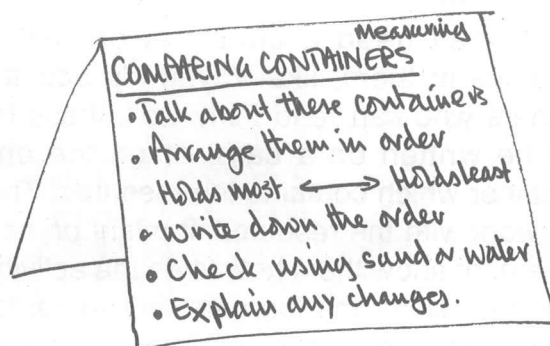 Measuring
COMPARING CONTAINERS
• Talk about these containers
• Arrange them in order
Holds most ⟷ Holds least
• Write down the order
• Check using sand or water
• Explain any changes.